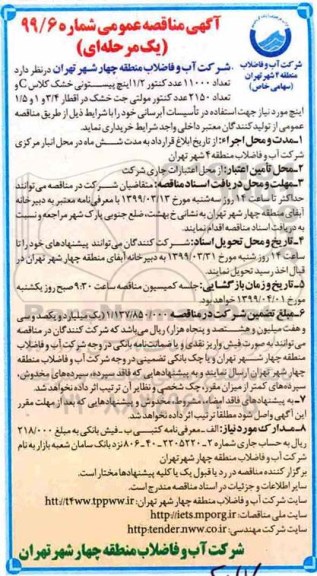 آگهی مناقصه عمومی شماره ۹۹/۶
(یک مرحله‌ای)
شرکت آب و فاضلاب
منطقه ۴ شهر تهران
(سهامی خاص)
شرکت آب و فاضلاب منطقه چهار شهر تهران در نظر دارد
تعداد ۱۱۰۰۰ عدد کنتور ۱/۲ اینچ پیستونی خشک کلاس C و
تعداد ۲۱۵۰ عدد کنتور مولتی جت خشک در اقطار ۳/۴ و ۱ و ۱/۵
اینچ مورد نیاز جهت استفاده در تأسیسات آبرسانی خود را با شرایط ذیل از طریق مناقصه
عمومی از تولیدکنندگان معتبر داخلی واجد شرایط خریداری نماید.
۱-مدت و محل اجراء: از تاریخ ابلاغ قرارداد به مدت شش ماه در محل انبار مرکزی
شرکت آب و فاضلاب منطقه ۴ شهر تهران
۲-محل تأمین اعتبار: از محل اعتبارات جاری شرکت
۳-مهلت و محل دریافت اسناد مناقصه: متقاضیان شرکت در مناقصه می‌توانند
حداکثر تا ساعت ۱۴ روز سه‌شنبه مورخ ۱۳۹۹/۰۳/۱۳ با معرفی‌نامه معتبر به دبیرخانه
آبفای منطقه چهار شهر تهران به نشانی خ بهشت، ضلع جنوبی پارک شهر مراجعه و نسبت
به دریافت اسناد مناقصه اقدام نمایند.
۴-تاریخ و محل تحویل اسناد: شرکت کنندگان می‌توانند پیشنهادهای خود را تا
ساعت ۱۴ روز شنبه مورخ ۱۳۹۹/۰۳/۳۱ به دبیرخانه آبفای منطقه چهار شهر تهران در
قبال اخذ رسید تحویل نمایند.
۵-تاریخ و زمان بازگشایی: جلسه کمیسیون مناقصه ساعت ۹:۳۰ صبح روز یکشنبه
مورخ ۱۳۹۹/۰۴/۰۱ خواهد بود.
۶-مبلغ تضمین شرکت در مناقصه ۱/۱۳۷/۸۵۰/۰۰۰ (یک میلیارد و یکصد و سی
و هفت میلیون و هشتصد و پنجاه هزار) ریال می‌باشد که شرکت کنندگان در مناقصه
می‌توانند به صورت فیش واریز نقدی و یا ضمانتنامه بانکی در وجه شرکت آب و فاضلاب
منطقه چهار شهر تهران و یا چک بانکی تضمینی در وجه شرکت آب و فاضلاب منطقه
چهار شهر تهران ارسال نمایند و به پیشنهادهایی که فاقد سپرده، سپرده‌های مخدوش،
سپرده‌های کمتر از میزان مقرر، چک شخصی و نظایر آن ترتیب اثر داده نخواهد شد.
۷-به پیشنهادهای فاقد امضاء، مشروط، مخدوش و پیشنهادهایی که بعد از مهلت مقرر
این آگهی واصل شود مطلقا ترتیب اثر داده نخواهد شد.
۸-مدارک مورد نیاز: الف-معرفی‌نامه کتبی ب-فیش بانکی به مبلغ ۲۱۸/۰۰۰
ریال به حساب جاری شماره ۲-۲۲۰۵۲۲۰-۸۰۶-۴۰ نزد بانک سامان شعبه بازار به نام
شرکت آب و فاضلاب منطقه چهار شهر تهران
برگزار کننده مناقصه در رد یا قبول یک یا کلیه پیشنهادها مختار است.
سایر اطلاعات و جزئیات در اسناد مناقصه مندرج است.
سایت شرکت آب و فاضلاب منطقه چهار شهر تهران: htt://t4ww.tppww.ir
سایت ملی مناقصات: http://iets.mporg.ir
سایت شرکت مهندسی: http:tender.nww.co.ir
شرکت آب و فاضلاب منطقه چهار شهر تهران